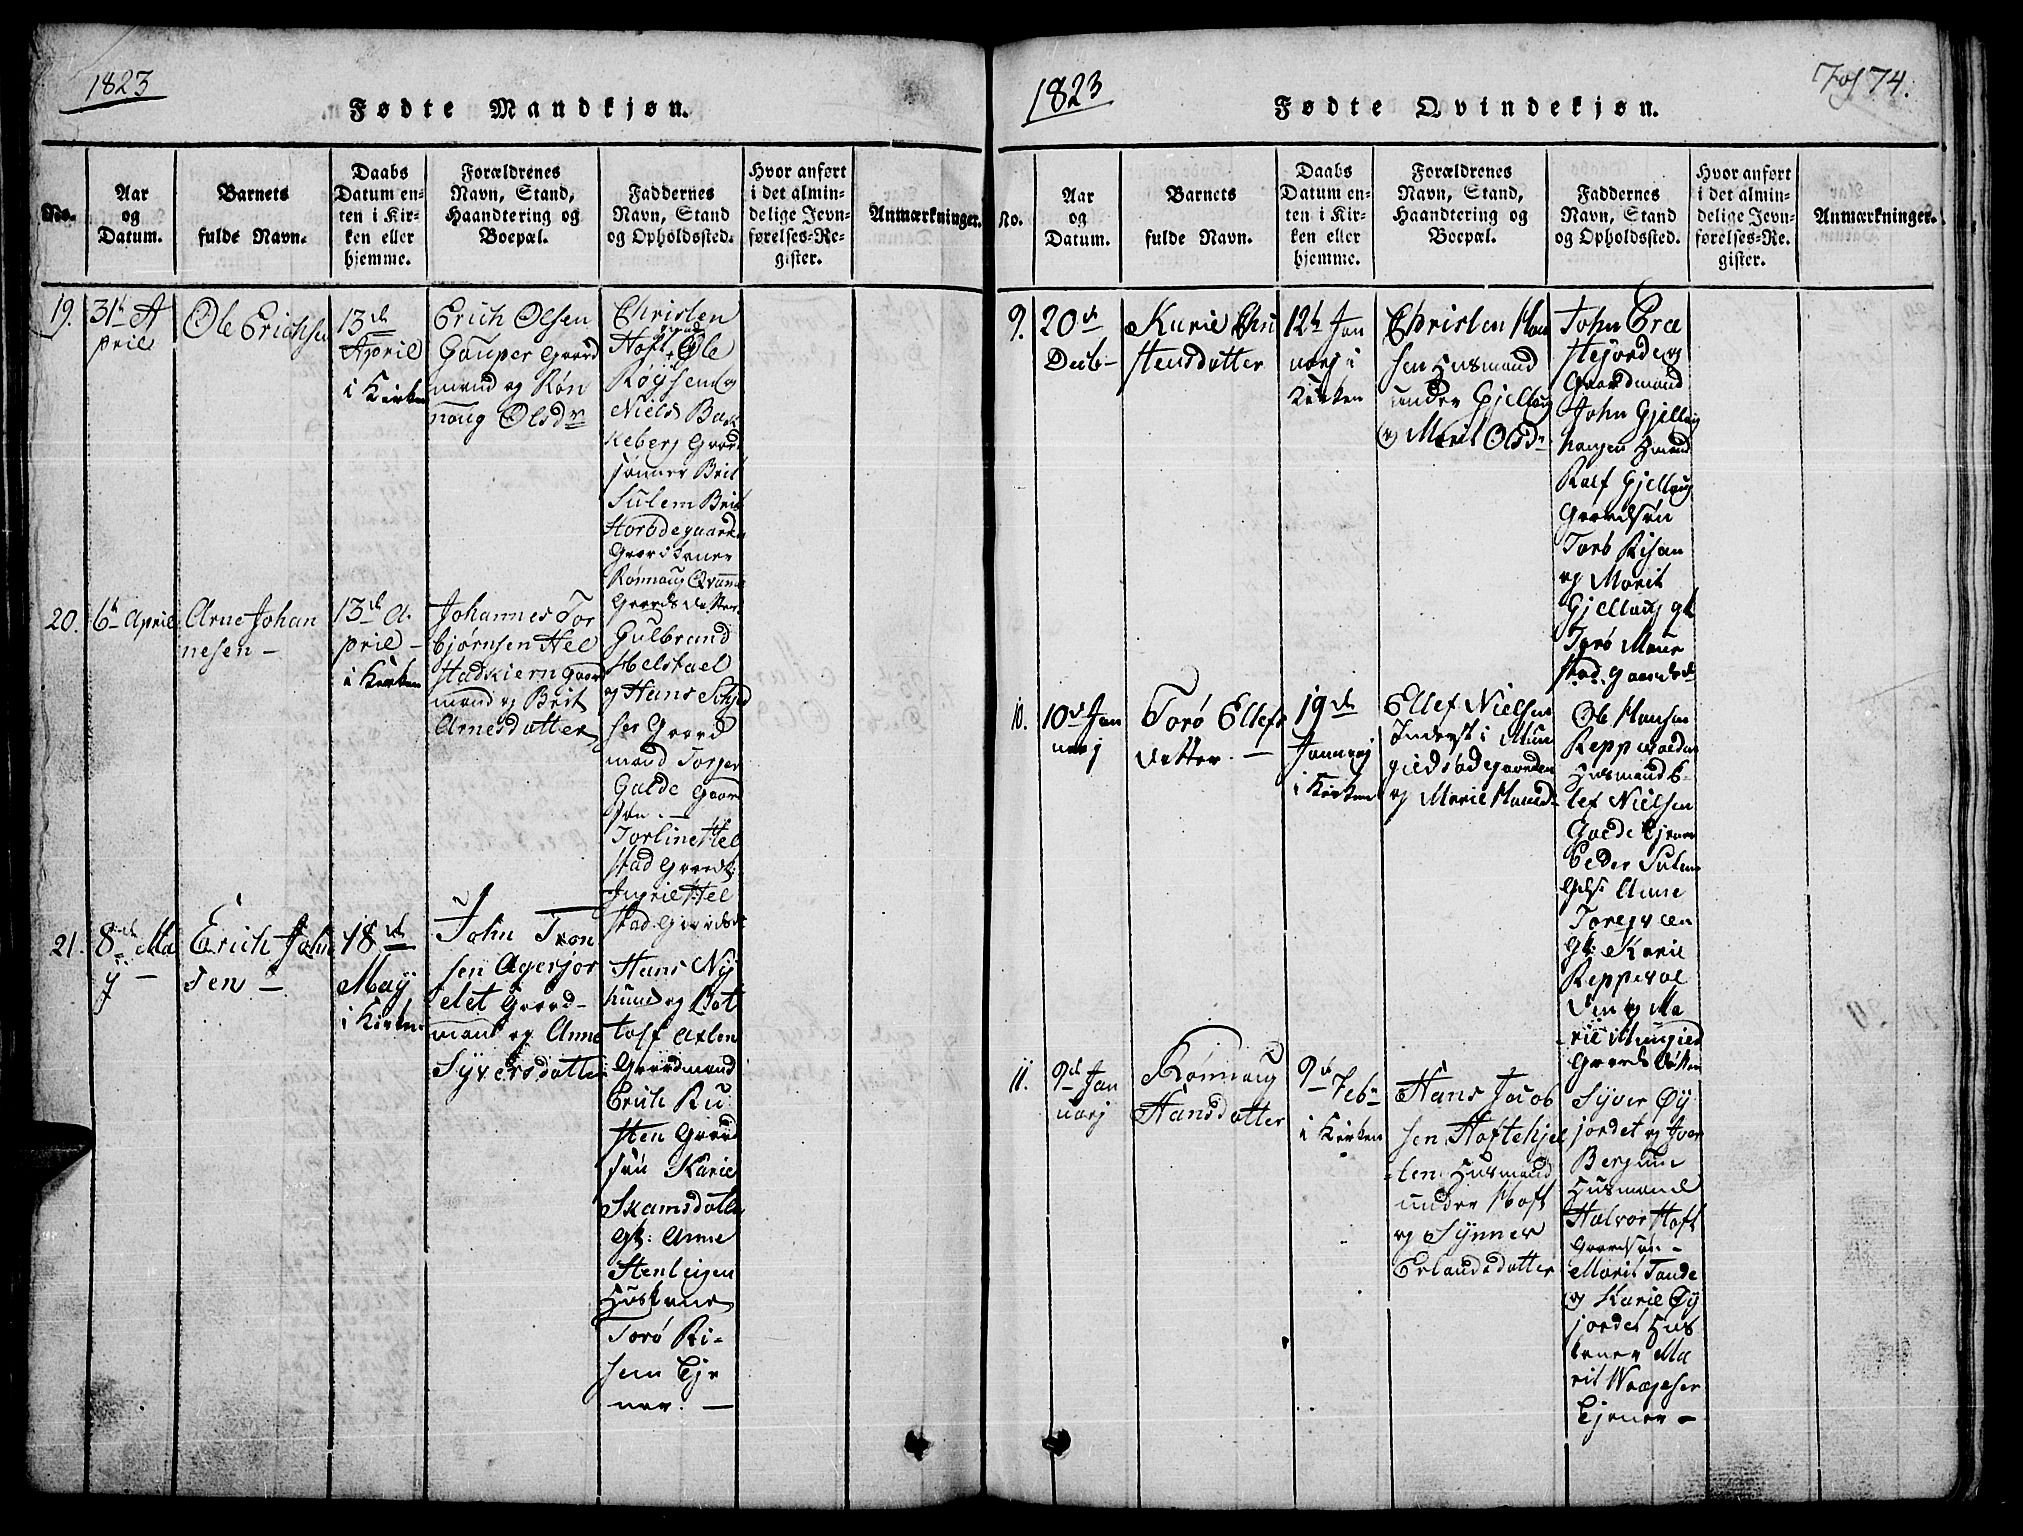 1823
Fødte Mandkjøn.
No.
Aar
og
Datum.
Barnets
fulde Navn.
Daabs
Datum en-
ten i Kir-
ken eller
hjemme.
Forældrenes
Navn, Stand,
Haandtering og
Boepæl.
Faddernes
Navn, Stand
og Opholdssted.
Hvor anført
i det almin-
delige Jevn-
førelses-Re-
gister.
Anmærkninger.
19.
31te A
pril
Ole Erichsen
13de
April
i Kirken
Erich Olsen
Gauper Gaard
mand og Røn
naug Olsdr
Christen
Hoft Ole
Røysen og
Niels Bak
keberg Gaard
sønner Brit
Sulem Brit
Storødegaarden
Gaardkoner
Rønnaug Qvamme
Gaardsdatter
20.
6te April
Arne Johan
nesen –
13de A
pril –
i Kirken
Johannes Tor
bjørnsen Hel
stadkiern Gaard
mand og Brit
Arnesdatter
Gulbrand
Helstad
og Hans
Gaard
mand Torger
Galde Gaard
søn. –
Torline Hel
stad Gaardk:
Ingrie Hel
stad Gaardsdr
21.
8de Ma
y –
Erich John
sen –
18de
May
i Kirken
John Tron
sen Agerjor
det Gaard-
mand og Anne
Syversdatter
Hans Ny
hund og Bot
tolf Axlen
Gaardmand
Erich Ru
sten Gaard
søn Karie
Skamsdatter
Gk: Anne
Stenleigen
Huskone
Torø Ri-
sem Tje
ner. –
1823
Fødte Qvindekjøn.
Fol 74.
No.
Aar
og
Datum.
Barnets
fulde Navn.
Daabs
Datum en-
ten i Kir-
ken eller
hjemme.
Forældrenes
Navn, Stand,
Haandtering og
Boepæl.
Faddernes
Navn, Stand
og Opholdssted.
Hvor anført
i det almin-
delige Jevn-
førelses-Re.
gister.
Anmærkninger.
9.
20de
Decb–
Karie Chri
stensdatter
12te Jan
uarj i
Kirken
Christen Han
sen Husmand
under Gjellaug
og Marit Olsdr
John Bræ
stejordet og
Gaardmand
John Gjellaug
haugen Hmand
Ralf Gjellaug
Gaardsøn
Torb Risan
og Marit
Gjellaug gk
Torø
stad. Gaardsdr
10.
10de Jan
uarj
Torø Ellefs
datter. –
19de
Januarj
i Kirken
Ellef Nielsen
Inderst i Mun
gielsødegaarden
og Marie Hansd–
Ole Hansen
Reppesdalen
Husmand E-
lef Nielsen
Galde Tjener
Peder Sulem
Gds: Anne
Toregveen
Gk: Karie
Reppesdal
en og Ma
rie Mungiel
Gaards Døttre
11.
9de Jan
uarj
Rønnaug
Hansdatter
9de Feb–
i Kirken
Hans Jacob
sen Hoftekjel
len Husmand
under Hoft
og Synnev
Erlandsdatter
Syver Øy
jordet og Iver
Berglund
Husmænd
Halvor Hoft
Gaardsøn –
Marit Tande
og Karie Øy
jordet Hus
koner Ma
rit Waageser
Tjener –